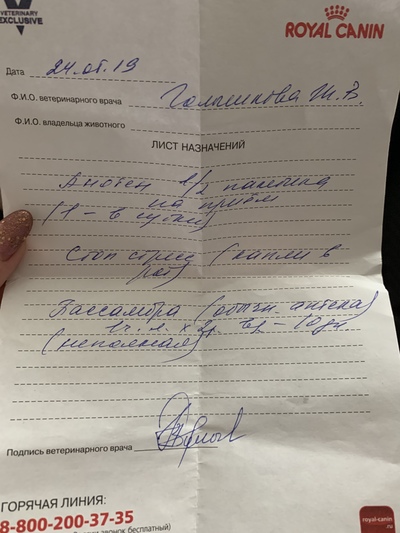 VETERINARY
EXCLUSIVE
ROYAL CANIN
Дата 24.05.19
Ф.И.О. ветеринарного врача
Ф.И.О. владельца животного
ЛИСТ НАЗНАЧЕНИЙ
1/2
на приём
(1 - в сутки)
Стоп стресс (капли в
рот)
Пассамбра (обычн. аптека)
1 ч. л. x 2 р. - 10 дн
(неполная)
Подпись ветеринарного врача
ГОРЯЧАЯ ЛИНИЯ:
8-800-200-37-35
бесплатный)
royal-canin
.ru